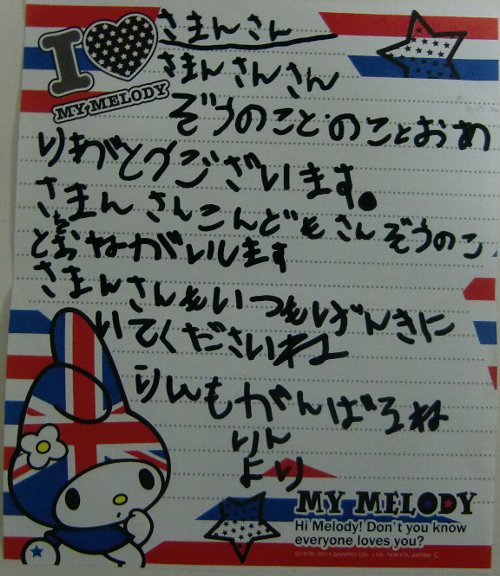 I
MY MELODY
さまんさん
さまんさんさん
ぞうのことのことおあ
りがとうございます。
さまんさんこんどもさんぞうのこ
とおねがいします
さまんさんもいつもげんきに
いてくださいね
りんもがんばるね
りん
より
MY MELODY
Hi Melody! Don't you know
everyone loves you?
©1976, 2011 SANRIO CO., LTD. TOKYO, JAPAN Ⓛ